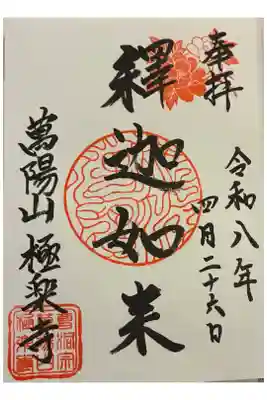 奉拝
令和八年
四月二十六日
釋迦如来
萬陽山 極楽寺